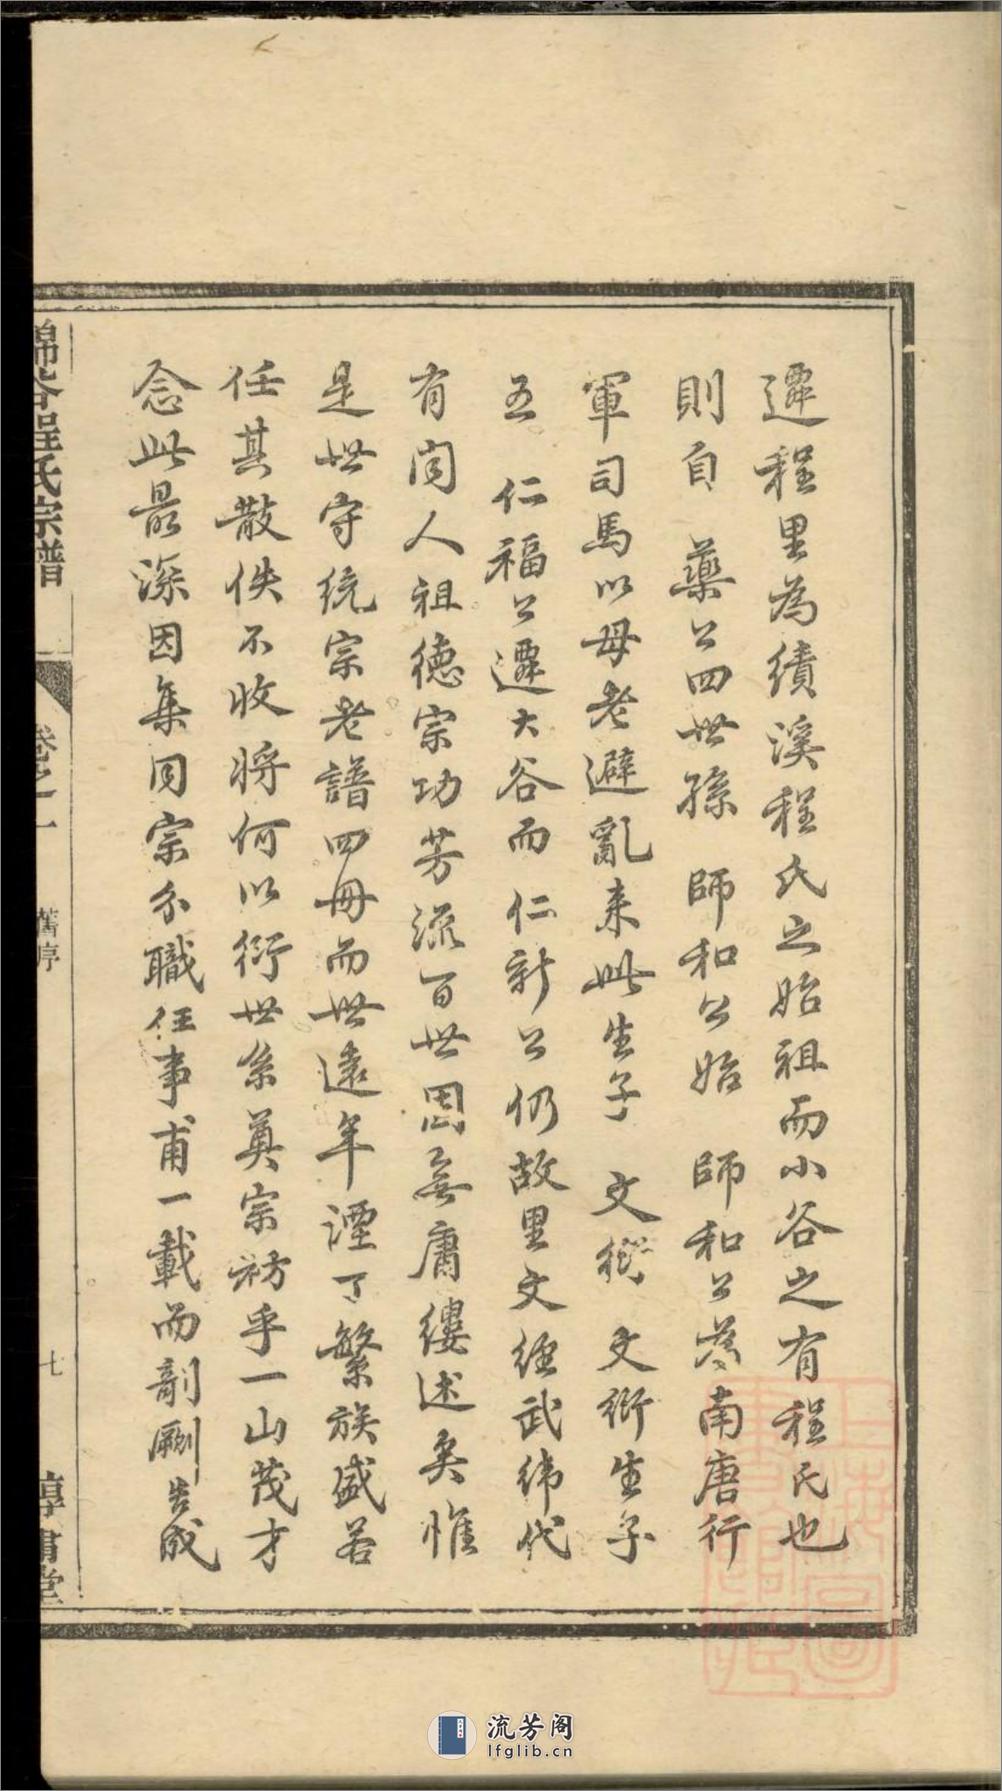 遷程里為績溪程氏之始祖而小谷之有程氏也
則自 藥公四世孫 師和公始 師和公為南唐行
軍司馬以母老避亂来此生子 文 文衍生子
五 仁福公遷大谷而 仁新公仍故里文經武緯代
有闻人祖德宗功芳流百世固無庸缕述矣惟
是世守統宗老譜四冊而世遠年湮丁繁族盛若
任其散佚不收將何以衍世系奠宗祊乎一山茂才
念此最深因集同宗分職任事甫一載而剞劂告成
錦谷程氏宗譜
卷之一
舊序
七
惇書堂
流芳阁
lfglib.cn